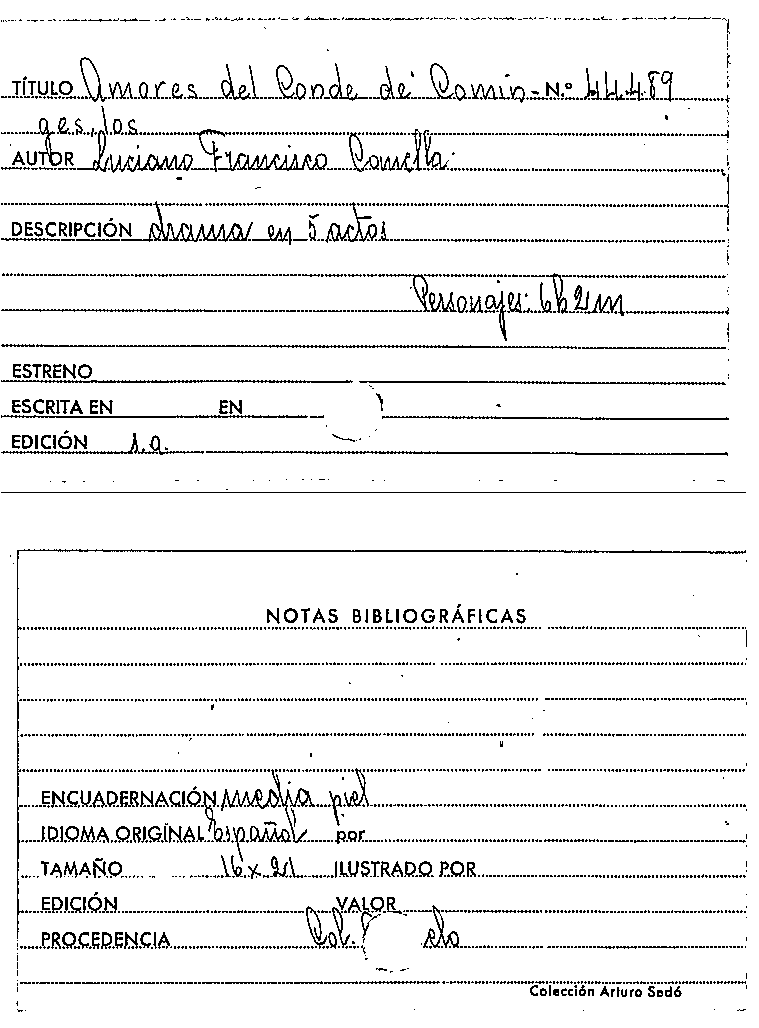 TÍTULO Amores del Conde de Comin- N.º 44.489
ges, los
AUTOR Luciano Francisco Comella
DESCRIPCIÓN drama en 5 actos
Personajes: 6h 2m
ESTRENO
ESCRITA EN EN
EDICIÓN s.a.
NOTAS BIBLIOGRÁFICAS
ENCUADERNACIÓN media piel
IDIOMA ORIGINAL Español por
TAMAÑO 16 x 21 ILUSTRADO POR
EDICIÓN VALOR
PROCEDENCIA Col.
Colección Arturo Sedó